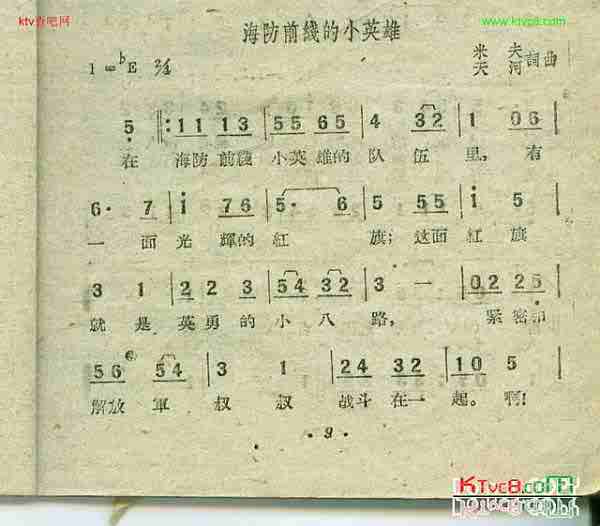 ktv查吧网
www.ktvc8.com
海防前綫的小英雄
1=♭E 2/4
米夫 詞
天河 曲
5 ‖: 1 1 1 3 | 5 5 6 5 | 4 3 2 | 1 0 6 |
在 海防前綫 小英雄的 队 伍 里, 有
6· 7 | i 7 6 | 5· 6 | 5 5 5 | i 5 |
一 面 光 輝的 紅 旗; 这面 紅 旗
3 1 | 2 2 3 | 5 4 3 2 | 3 — | 0 2 2 5 |
就 是 英勇的 小 八 路, 紧密和
5 6 5 4 | 3 1 | 2 4 3 2 | 1 0 5 |
解放 軍 叔 叔 战斗在一 起。 啊!
· 9 ·
KTvc8.com